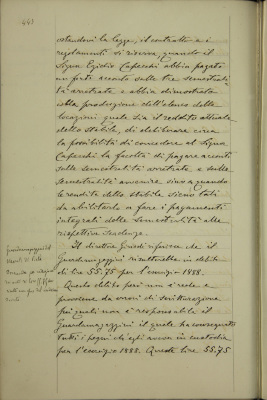 443
ostandovi la legge, il contratto e i
regolamenti si riserva, quando il
Signor Egidio Capecchi abbia pagato
un forte acconto sulle tre semestralità
arretrate e abbia dimostrato
colla produzione dell'elenco delle
locazioni quale sia il reddito attuale
dello stabile, di deliberare circa
la possibilità di concedere al Signor
Capecchi la facoltà di pagare acconti
sulle semestralità arretrate e sulle
semestralità avvenire sino a quando
le rendite dello stabile sieno tali
da abilitarlo a fare i pagamenti
integrali delle semestralità alle
rispettive scadenze.
Il direttore riferisce che il
Guardamagazzini risulterebbe in debito
di lire 55.75 per l'esercizio 1888.
Questo debito però non è reale e
proviene da errori di scritturazione
pei quali non è responsabile il
Guardamagazzini il quale ha consegnato
tutti i pegni ch'egli aveva in custodia
per l'esercizio 1888. Queste lire 55.75
Guardamagazzini del